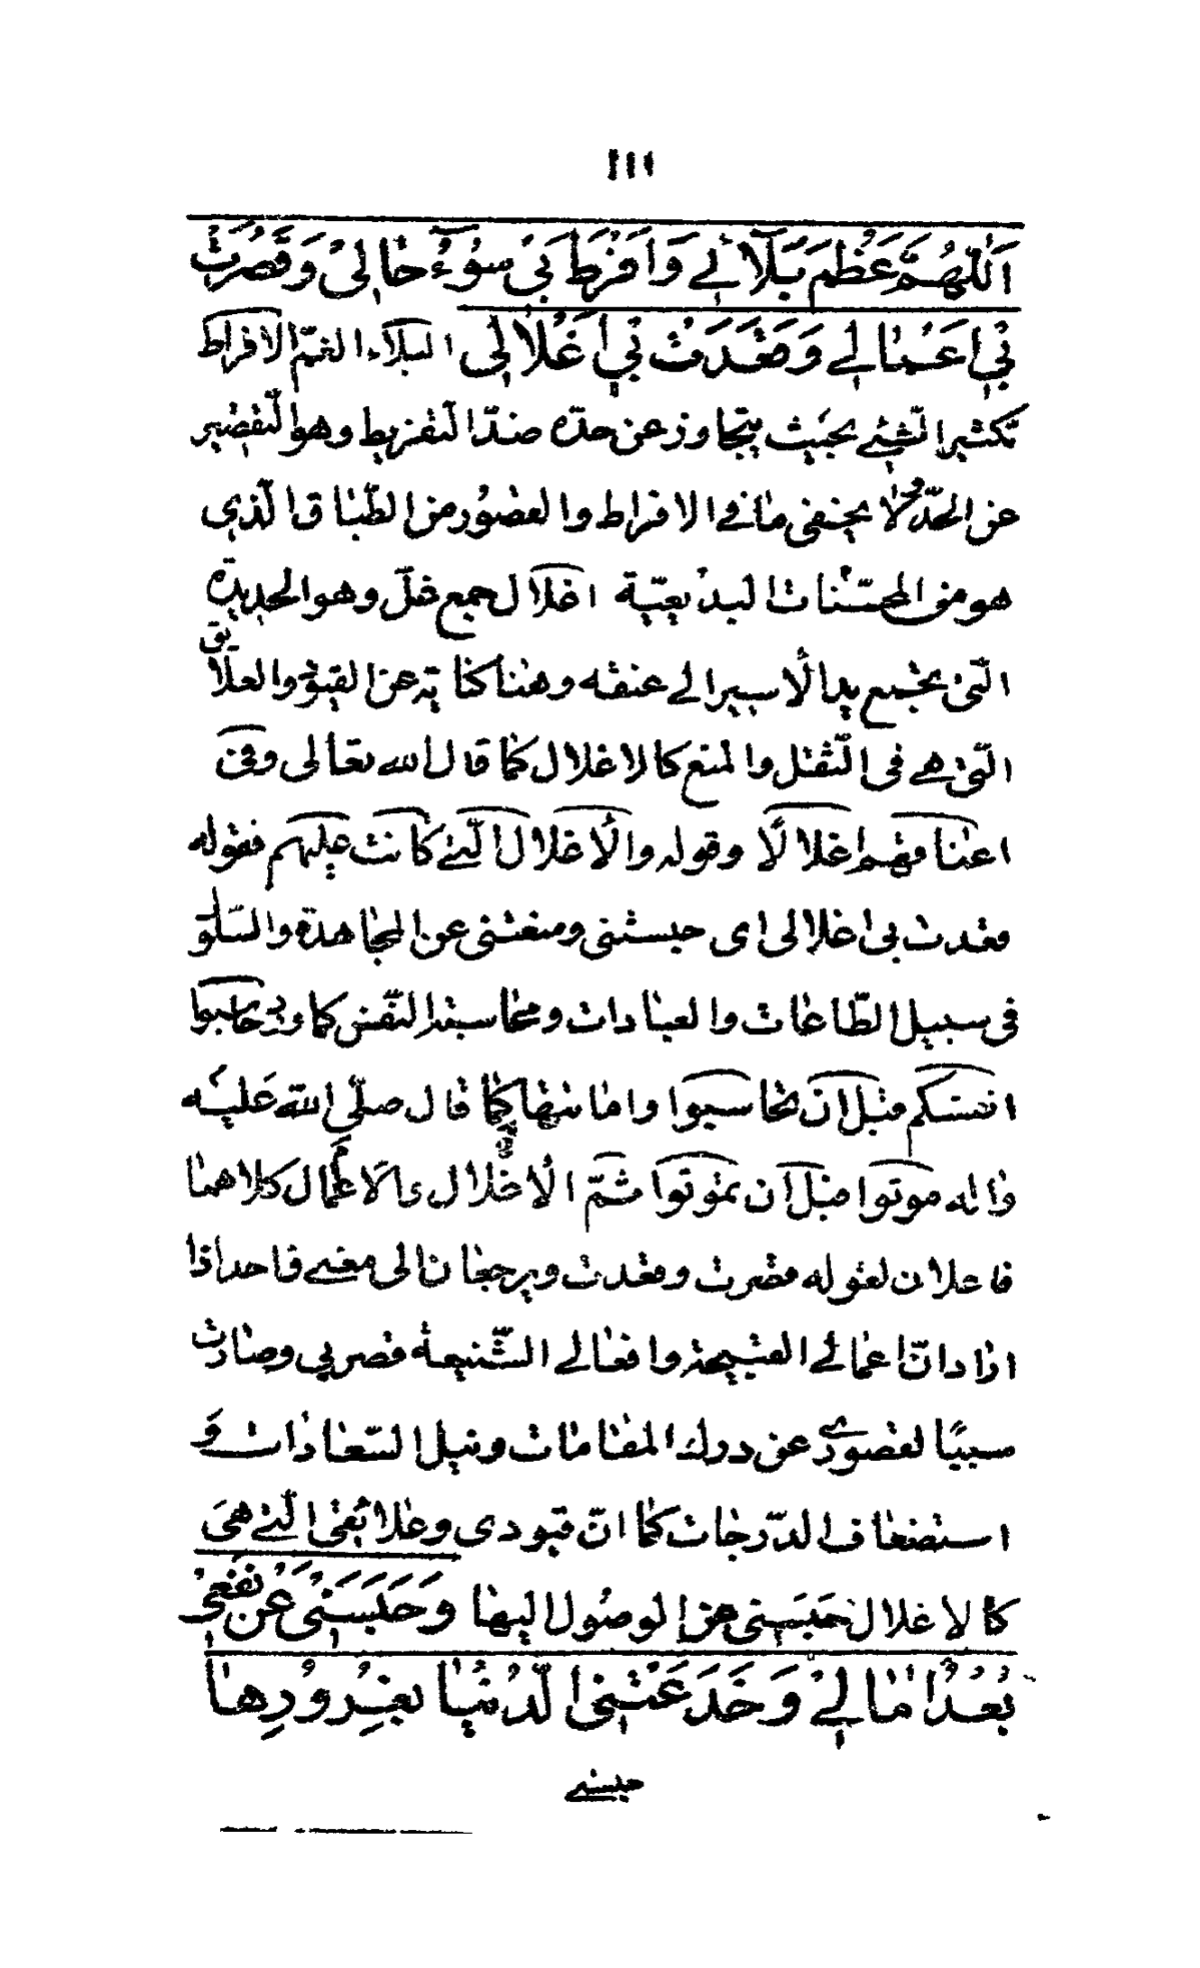 ١١١
اَللّٰهُمَّ عَظُمَ بَلَآئي وَاَفْرَطَ بي سُوۤءُ حٰالي وَقَصُرَتْ
بي اَعْمٰالي وَقَعَدَتْ بي اَغْلٰالي البلاء الغمّ الافراط
تكثير الشّيئ بحيث يتجاوز عن حدّه ضدّ التّفريط وهو التّقصير
عن الحدّ ولا يخفى مٰا في الافراط والقصور من الطّباق الّذي
هو من المحسّنات البديعيّة اغلال جمع غلّ وهو الحديدة
الّتي يجمع يد الأسير الى عنقه وهنا كناية عن القيود والعلايق
الّتي هي في الثّقل والمنع كالاغلال كما قال الله تعالى وفي
اعناقهم اغلالًا وقوله والأغلال الّتي كانت عليهم فقوله
قعدت بي اغلالى اى حبستني ومنعتني عن المجاهدة والسّلوك
في سبيل الطّاعات والعبادات ومحاسبة النّفس كما ورد حاسبوا
انفسكم قبل ان تحاسبوا واماتتها كما قال صلّى الله عَليه
واله موتوا قبل ان تموتوا ثمّ الأغلال كالاعمال كلاهما
فاعلان لقوله قصرت وقعدت ويرجعان الى معنى واحد اذا
اذ ذات اعمالي القبيحة وافعالي الشّنيعة قصر بي وصارت
سببًا لقصوري عن درك المقامات ونيل السّعادات وَ
استضعاف الدّرجات كما انّ قيودى وعلائقي الّتي هيَ
كالاغلال حَبَسَني عن الوصُول اليها وَحَبَسَني عَنْ نَفْعي
بُعْدُ اٰمٰالي وَخَدَعَتْنِى الدُّنْيٰا بِغُرُورِهٰا
حبسني